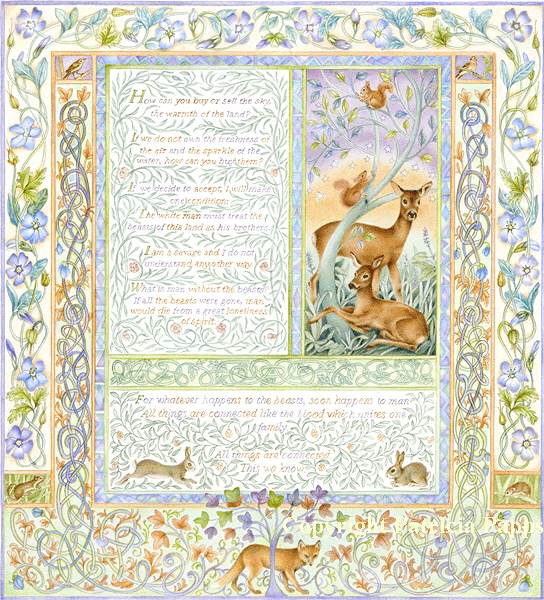 How can you buy or sell the sky,
the warmth of the land?
If we do not own the freshness of
the air and the sparkle of the
water, how can you buy them?
If we decide to accept, I will make
one condition:
The white man must treat the
beasts of this land as his brothers.
I am a savage and I do not
understand any other way
What is man without the beasts?
If all the beasts were gone, man
would die from a great loneliness
of spirit.
For whatever happens to the beasts, soon happens to man
All things are connected like the blood which unites one
family.
All things are connected
This we know
Copyright Patricia